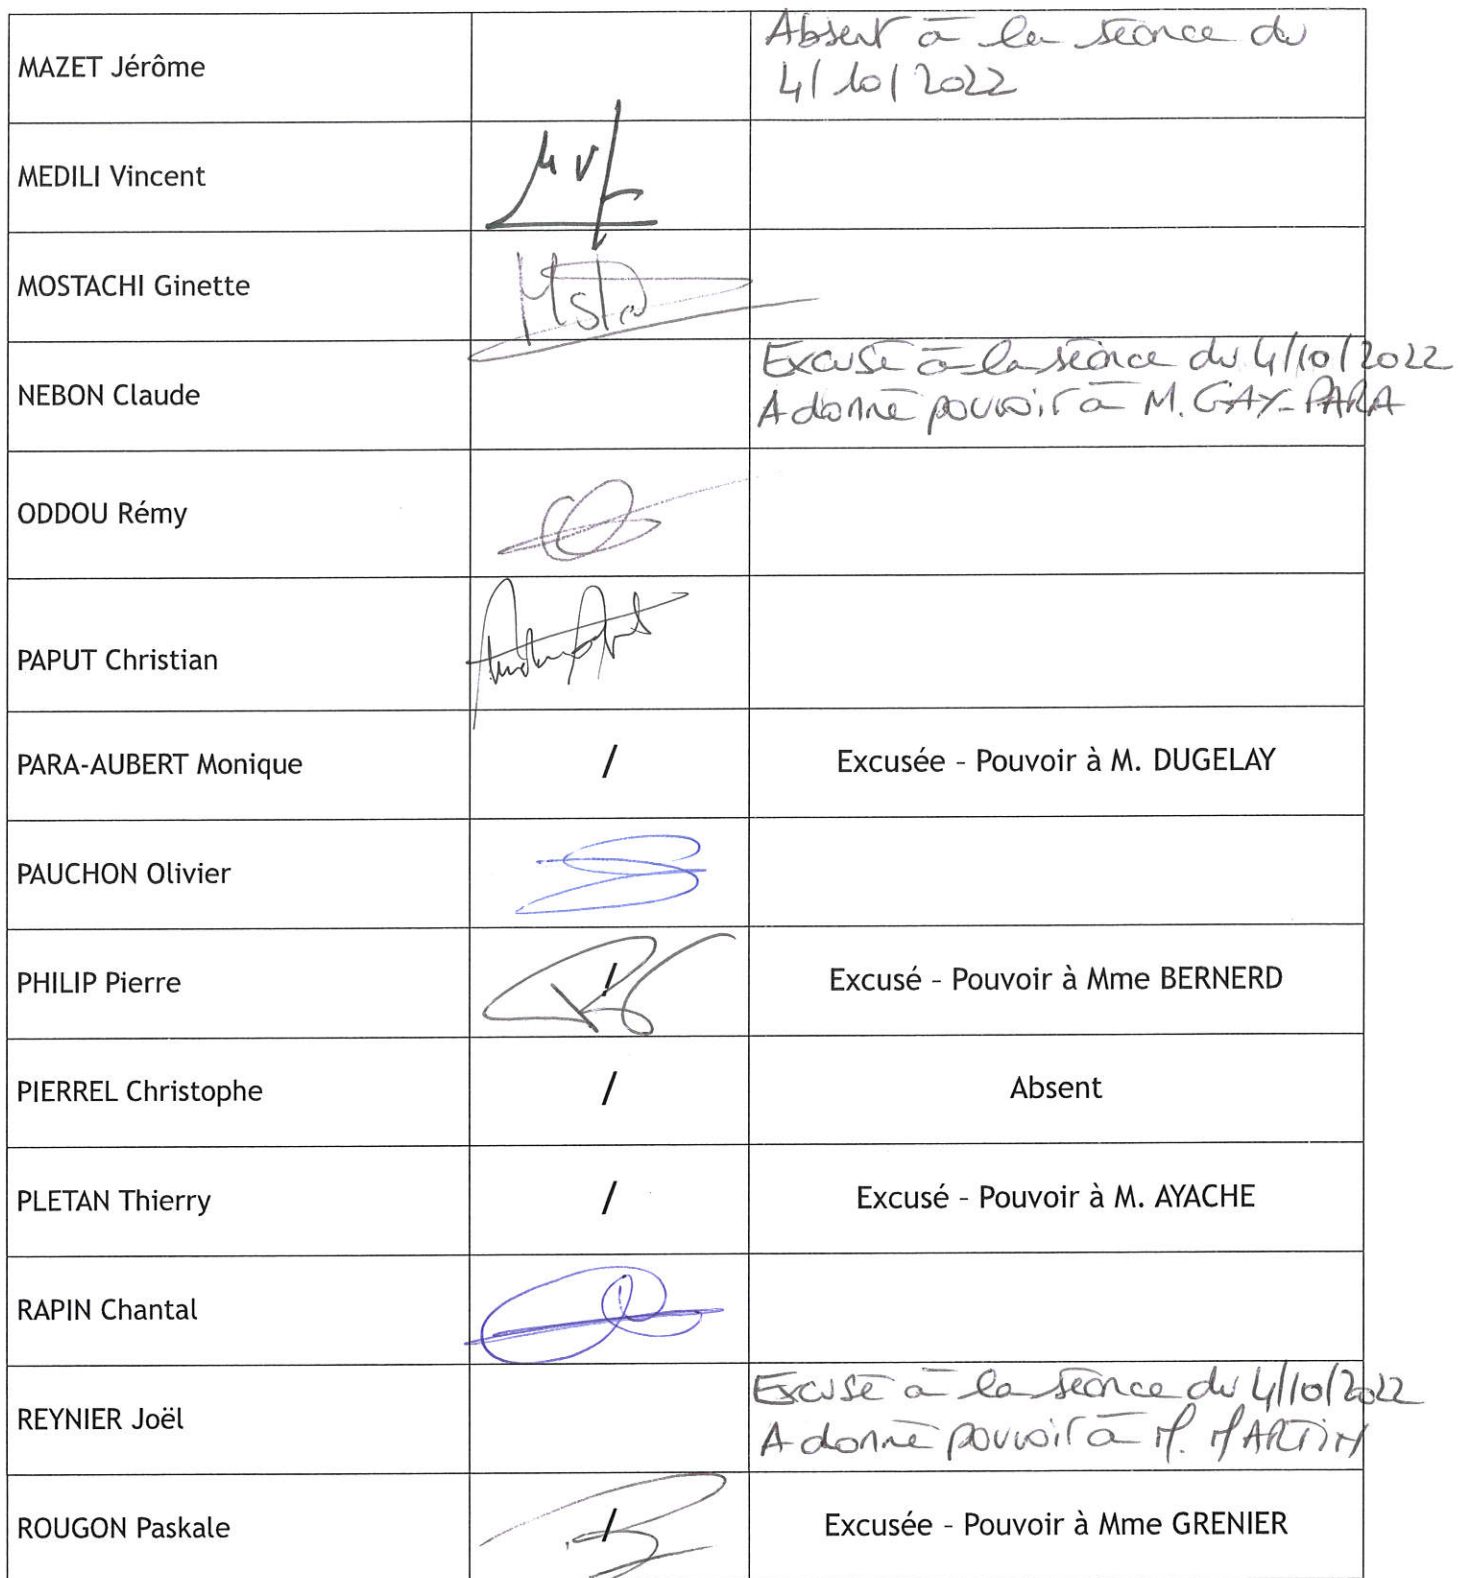 MAZET Jérôme
Absent à la séance du
4/10/2022
MEDILI Vincent
MOSTACHI Ginette
NEBON Claude
Excusé à la séance du 4/10/2022
A donné pouvoir à M. GAY-PARA
ODDOU Rémy
PAPUT Christian
PARA-AUBERT Monique / Excusée - Pouvoir à M. DUGELAY
PAUCHON Olivier
PHILIP Pierre / Excusé - Pouvoir à Mme BERNERD
PIERREL Christophe / Absent
PLETAN Thierry / Excusé - Pouvoir à M. AYACHE
RAPIN Chantal
REYNIER Joël
Excusé à la séance du 4/10/2022
A donné pouvoir à M. MARTIN
ROUGON Paskale / Excusée - Pouvoir à Mme GRENIER